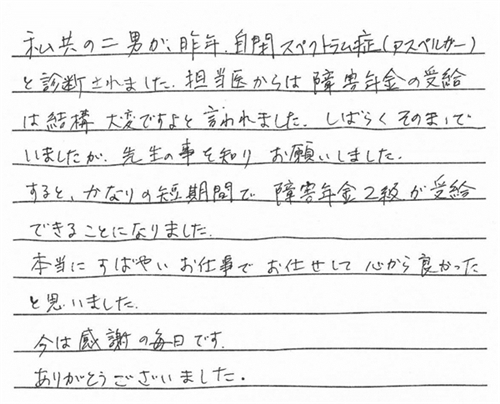 私共の二男が、昨年、自閉スペクトラム症(アスペルガー)
と診断されました。担当医からは 障害年金の受給
は結構 大変ですよと言われました。しばらく そのままで
いましたが、先生の事を知り お願いしました。
すると、かなりの短期間で 障害年金2級が受給
できることになりました。
本当に すばやい お仕事で お任せして 心から良かった
と思いました。
今は感謝の毎日です。
ありがとうございました。